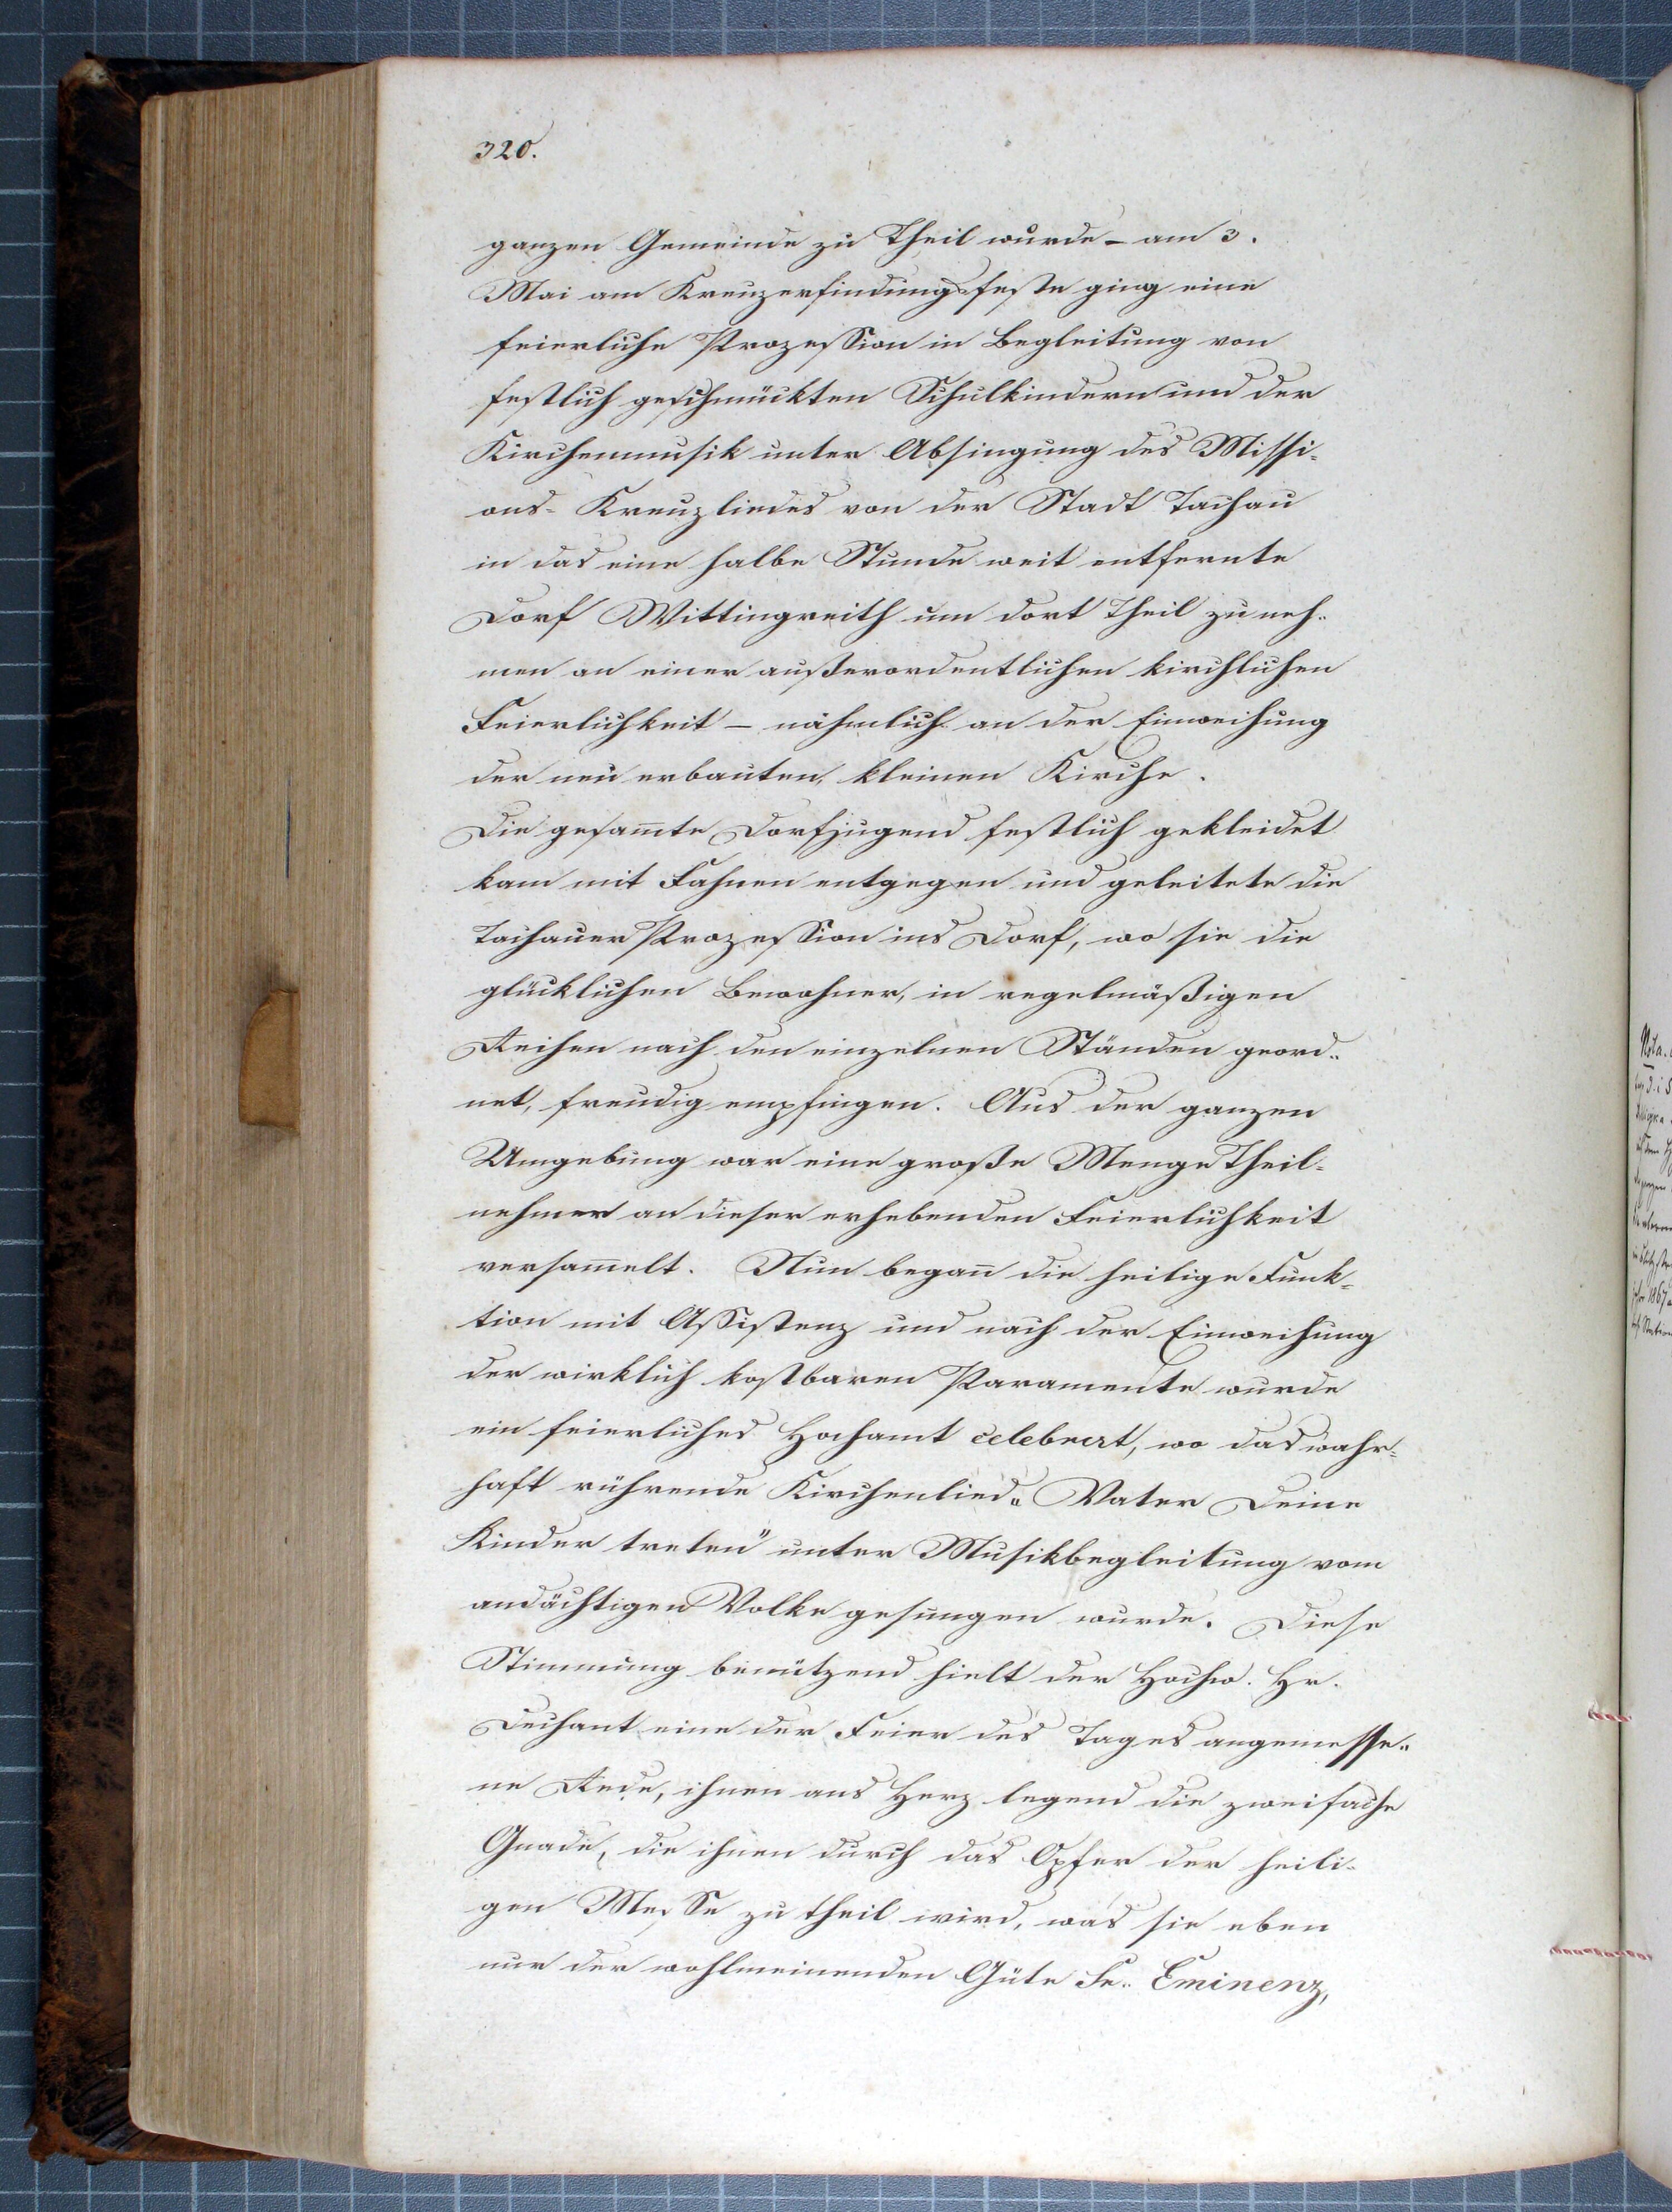 320.
ganzen Gemeinde zu Theil wurde – am 3.
Mai am Kreuzerfindungsfeste ging eine
feierliche Prozession in Begleitung von
festlich geschmückten Schulkindern und der
Kirchenmusik unter Absingung des Missi-
ons- Kreuzliedes von der Stadt Tachau
in das eine halbe Stunde weit entfernte
Dorf Wittingreith um dort Theil zu neh-
men an einer außerordentlichen kirchlichen
Feierlichkeit – nähmlich an der Einweihung
der neu erbauten, kleinen Kirche.
Die gesam̅te Dorfjugend festlich gekleidet
kam mit Fahnen entgegen und geleitete die
Tachauer Prozession ins Dorf, wo sie die
glücklichen Bewohner, in regelmäßigen
Reihen nach den einzelnen Ständen geord-
net, freudig empfingen. Aus der ganzen
Umgebung war eine große Menge Theil-
nehmer an dieser erhebenden Feierlichkeit
versam̅elt. Nun began̅ die heilige Funk-
tion mit Assistenz und nach der Einweihung
der wirklich kostbaren Paramente wurde
ein feierliches Hochamt celebrirt, wo das wahr-
haft rührende Kirchenlied „Vater Deine
Kinder treten" unter Musikbegleitung vom
andächtigen Volke gesungen wurde. Diese
Stimmung benützend hielt der Hochw. Hr.
Dechant eine der Feier des Tages angemesse-
ne Rede, ihnen ans Herz legend die zweifache
Gnade, die ihnen durch das Opfer der heili-
gen Messe zu theil wird, was sie eben
nur der wohlmeinenden Güte Sr. Eminenz,
Nota.
1867